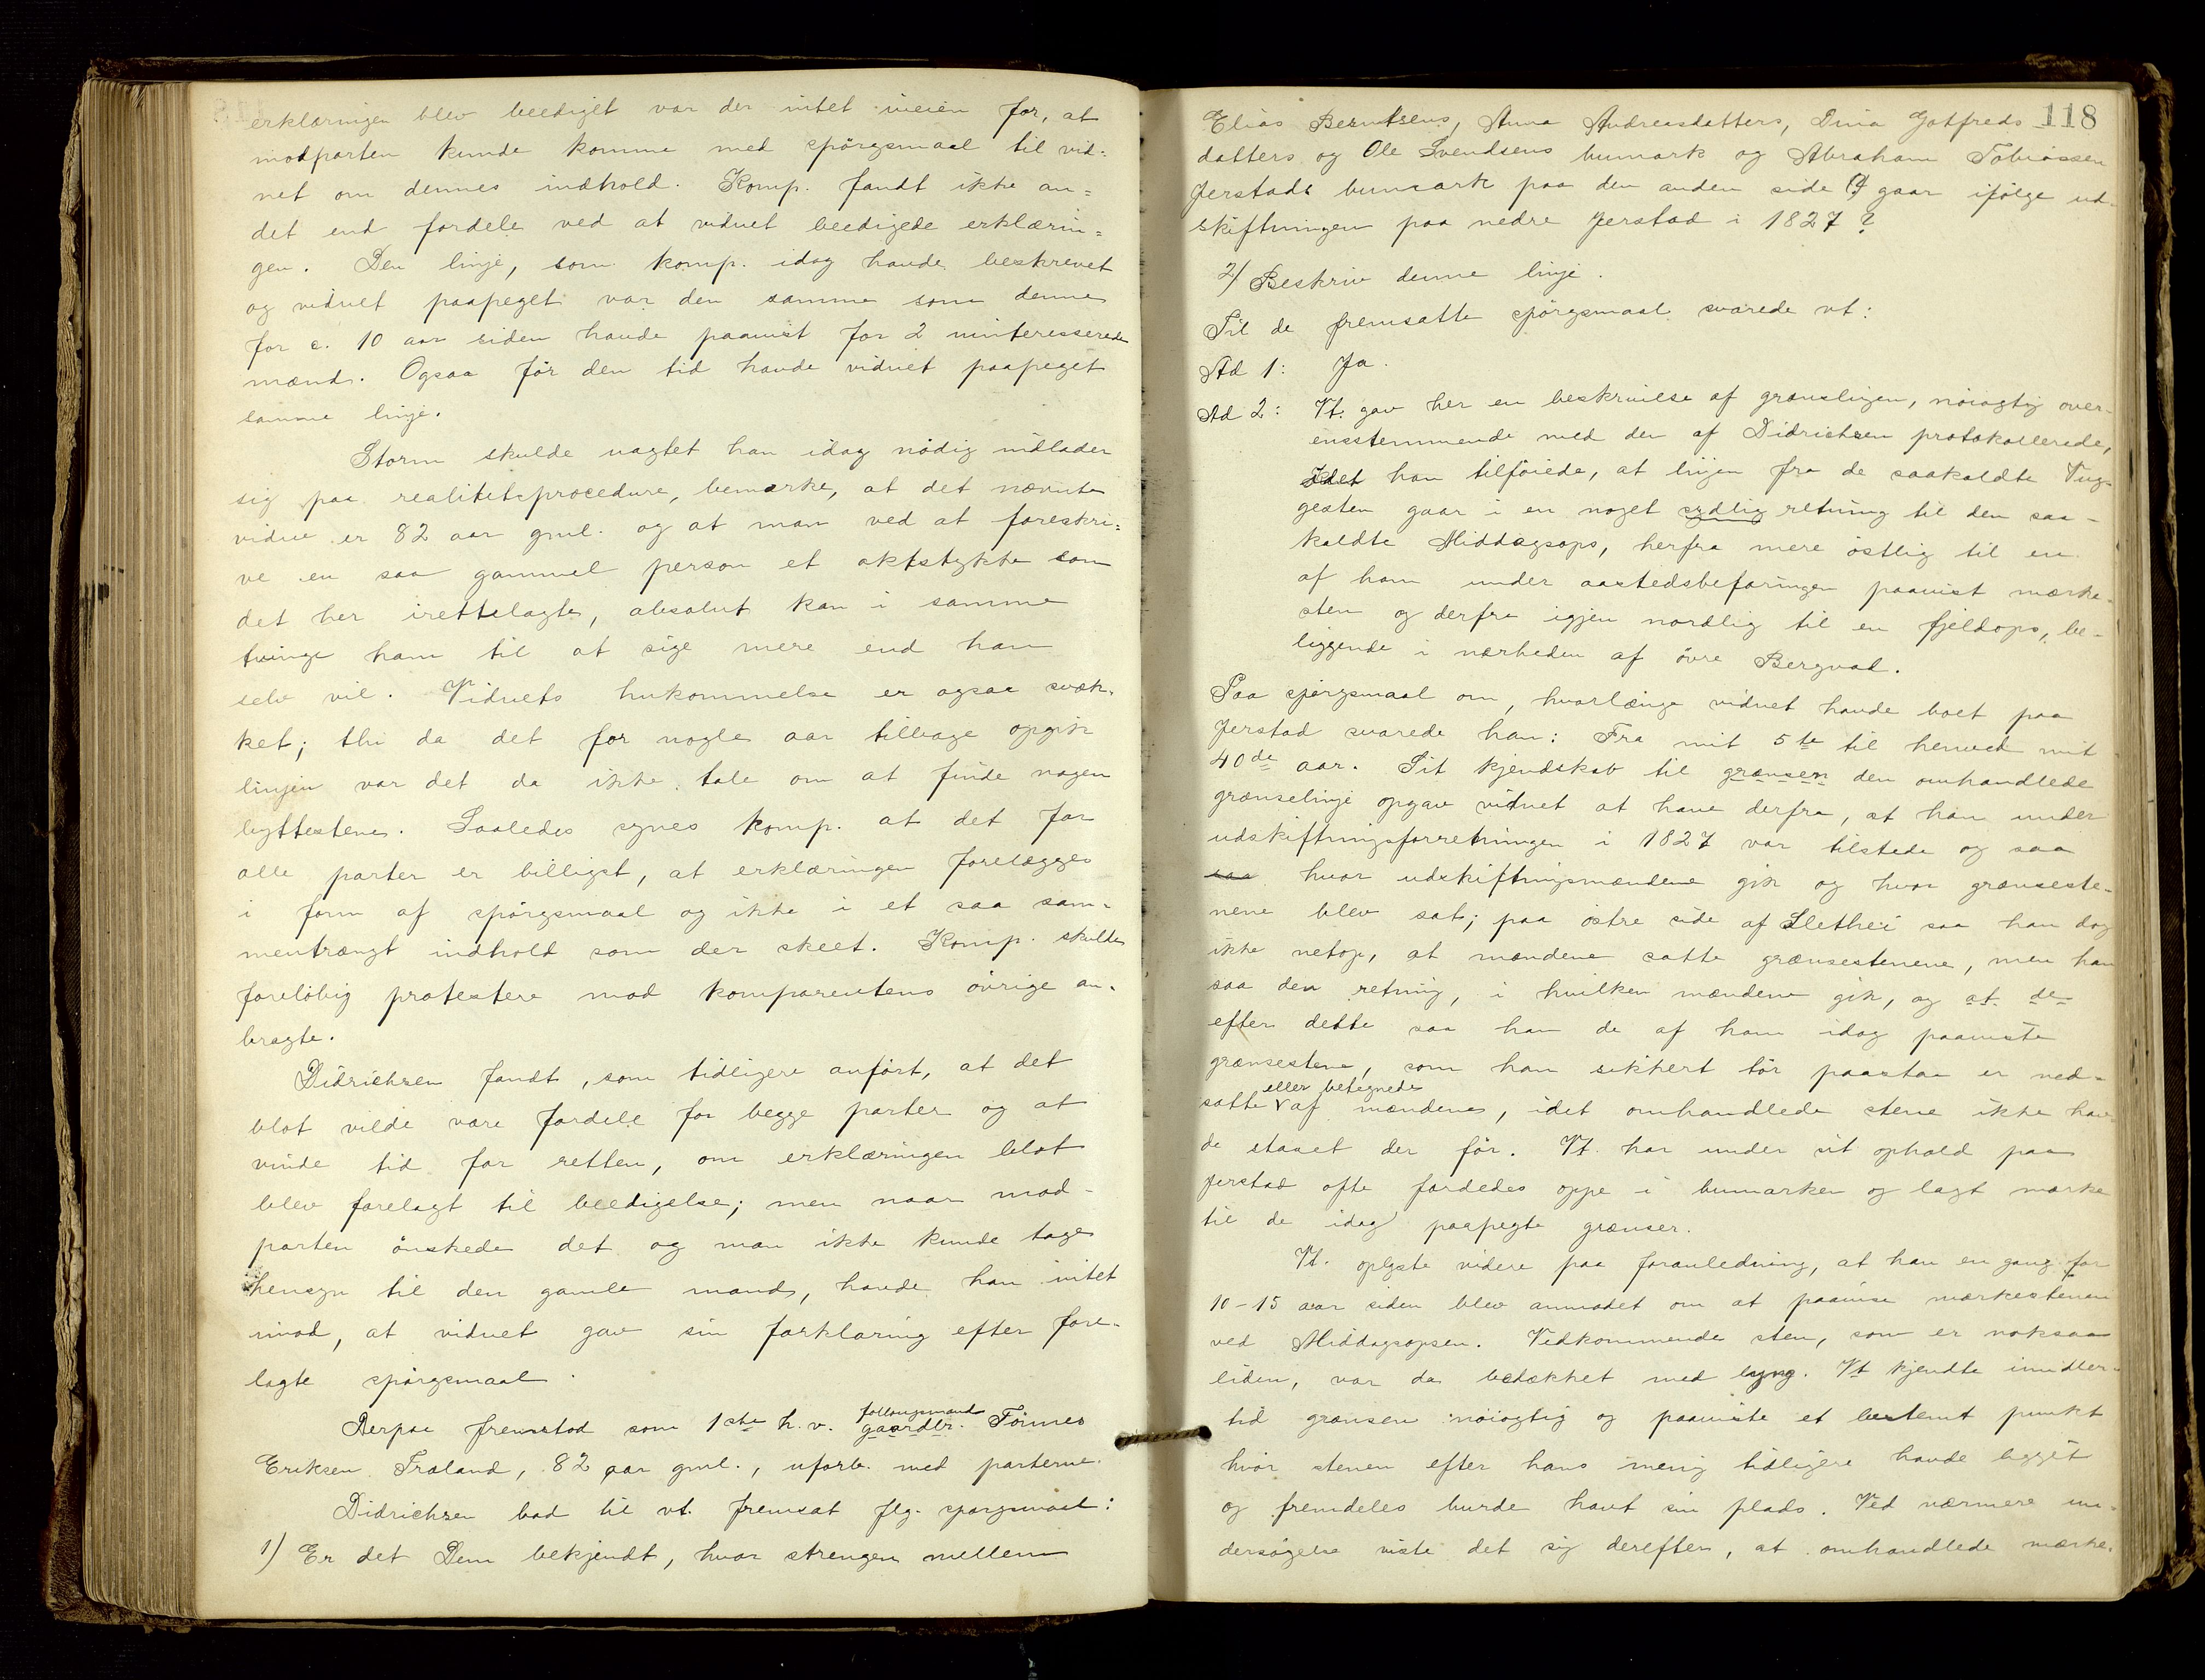 erklæringen blev beediget var der intet iveien for, at
modparten kunde komme med spörgsmaal til vid=
net om dennes indhold. Komp. fandt ikke an=
det end fordele ved at vidnet beedigede erklærin=
gen. Den linje, som komp. idag havde beskrevet
og vidnet paapeget var den samme som denne
for c. 10 aar siden havde paavist for 2 uinteresserede
mænd. Ogsaa för den tid havde vidnet paapeget
samme linje.
Storm skulde uagtet han idag nödig indlader
sig paa realitetsprocedure, bemærke, at det nævnte
vidne er 82 aar gml. og at man ved at foreskri=
ve en saa gammel person et aktstykke som
det her irettelagte, absolut kan i samme
tvinge ham til at sige mere end han
selv vil. Vidnets hukommelse er ogsaa svæk-
ket; thi da det for nogle aar tilbage opgik
linjen var det da ikke tale om at finde nogen
byttestene. Saaledes synes komp. at det for
alle parter er billigst, at erklæringen forelægges
i form af spörgsmaal og ikke i et saa sam-
mentrængt indhold som der skeet. Komp. skulde
forelöbig protestere mod komparentens övrige an-
bragte.
Didrichsen fandt, som tidligere anfört, at det
blot vilde være fordele for begge parter og at
vinde tid for retten, om erklæringen blot
blev forelagt til beedigelse; men naar mod-
parten önskede det og man ikke kunde tage
hensyn til den gamle mand, havde han intet
imod, at vidnet gav sin forklaring efter fore-
lagte spörgsmaal.
Derpaa fremstod som 1ste h. v. gaardbr. föllougsmand Tönnes
Eriksen Fræland, 82 aar gml., uforb. med parterne.
Didrichsen bad til vt. fremsat flg. spørgsmaal:
1) Er det Dem bekjendt, hvor strengen mellem
118
Elias Berntsens, Anna Andreasdatters, Dina Gotfreds
datters og Ole Svendsens bumark og Abraham Tobiassen
Jerstads bumark paa den anden side gaar ifölge ud-
skiftningen paa nedre Jerstad i 1827?
2) Beskriv denne linje.
Til de fremsatte spörgsmaal svarede vt:
Ad 1: Ja.
Ad 2: Vt. gav her en beskrivelse af grænselinjen, nöiagtig over-
ensstemmende med den af Didrichsen protokollerede,
Idet han tilföiede, at linjen fra de saakaldte Tug-
gesten gaar i en noget sydlig retning til den saa-
kaldte Middagsops, herfra mere östlig til en
af ham under aastedsbefaringen paavist mærke-
sten og derfra igjen nordlig til en fjeldops, be-
liggende i nærheden af övre Bergvad.
Paa spörgsmaal om, hvorlænge vidnet havde boet paa
Jerstad svarede han: Fra mit 5te til henved mit
40de aar. Sit kjendskab til grænsen den omhandlede
grænselinje opgav vidnet at have derfra, at han under
udskiftningsforretningen i 1827 var tilstede og saa
saa hvor udskiftningsmændene gik og hvor grænseste-
nene blev sat; paa östre side af Slethei saa han dog
ikke netop, at mændene satte grænsestenene, men han
saa den retning, i hvilken mændene gik, og at de
efter dette saa han de af ham idag paaviste
grænsestene, som han sikkert tör paastaa er ned-
satte eller betegnede af mændene, idet omhandlede stene ikke hav-
de staaet der för. Vt. har under sit ophold paa
Jerstad ofte færdedes oppe i bumarken og lagt mærke
til de idag paapegte grænser.
Vt. oplyste videre paa foranledning, at han en gang for
10-15 aar siden blev anmodet om at paavise mærkestenen
ved Middagsopsen. Vedkommende sten, som er noksaa
liden, var da bedækket med lyng. Vt kjendte imidler-
tid grænsen nöiagtig og paaviste et bestemt punkt
hvor stenen efter hans mening tidligere havde ligget
og fremdeles burde havt sin plads. Ved nærmere un-
dersögelse viste det sig derefter, at omhandlede mærke-